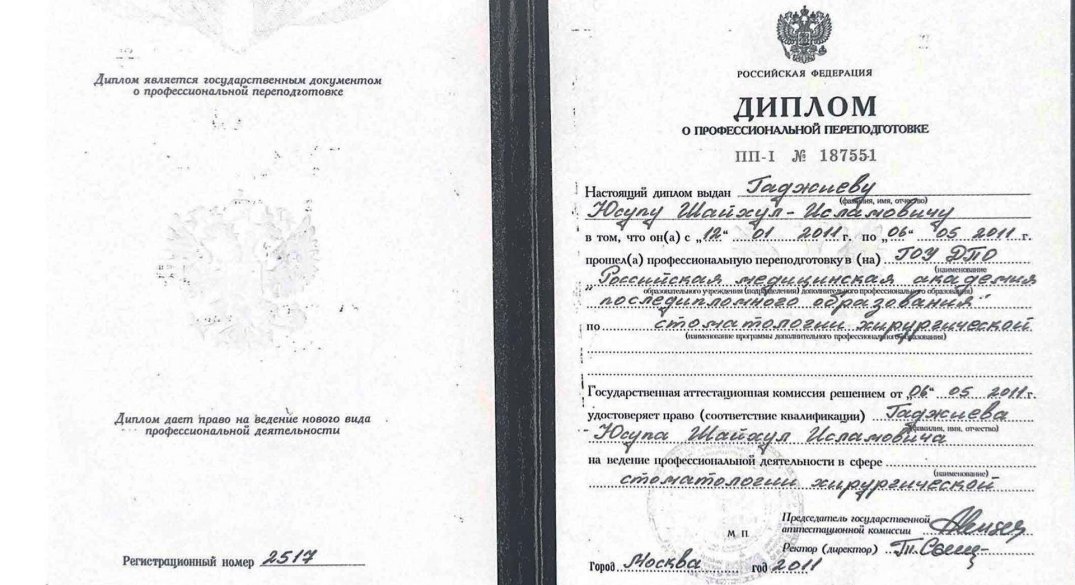 Диплом является государственным документом
о профессиональной переподготовке
Диплом дает право на ведение нового вида
профессиональной деятельности
Регистрационный номер 2517
РОССИЙСКАЯ ФЕДЕРАЦИЯ
ДИПЛОМ
О ПРОФЕССИОНАЛЬНОЙ ПЕРЕПОДГОТОВКЕ
ПП-I № 187551
Настоящий диплом выдан Гаджиеву
(фамилия, имя, отчество)
Юсупу Шайхул-Исламовичу
в том, что он(а) с „12“ 01 2011 г. по „06“ 05 2011 г.
прошел(а) профессиональную переподготовку в (на) ГОУ ДПО
(наименование
„Российская медицинская академия
образовательного учреждения (подразделения) дополнительного профессионального образования)
последипломного образования“
по стоматологии хирургической
(наименование программы дополнительного профессионального образования)
Государственная аттестационная комиссия решением от „06“ 05 2011 г.
удостоверяет право (соответствие квалификации) Гаджиева
(фамилия, имя, отчество)
Юсупа Шайхул Исламовича
на ведение профессиональной деятельности в сфере
(наименование)
стоматологии хирургической
Председатель государственной
аттестационной комиссии
М П
Ректор (директор)
Город Москва год 2011